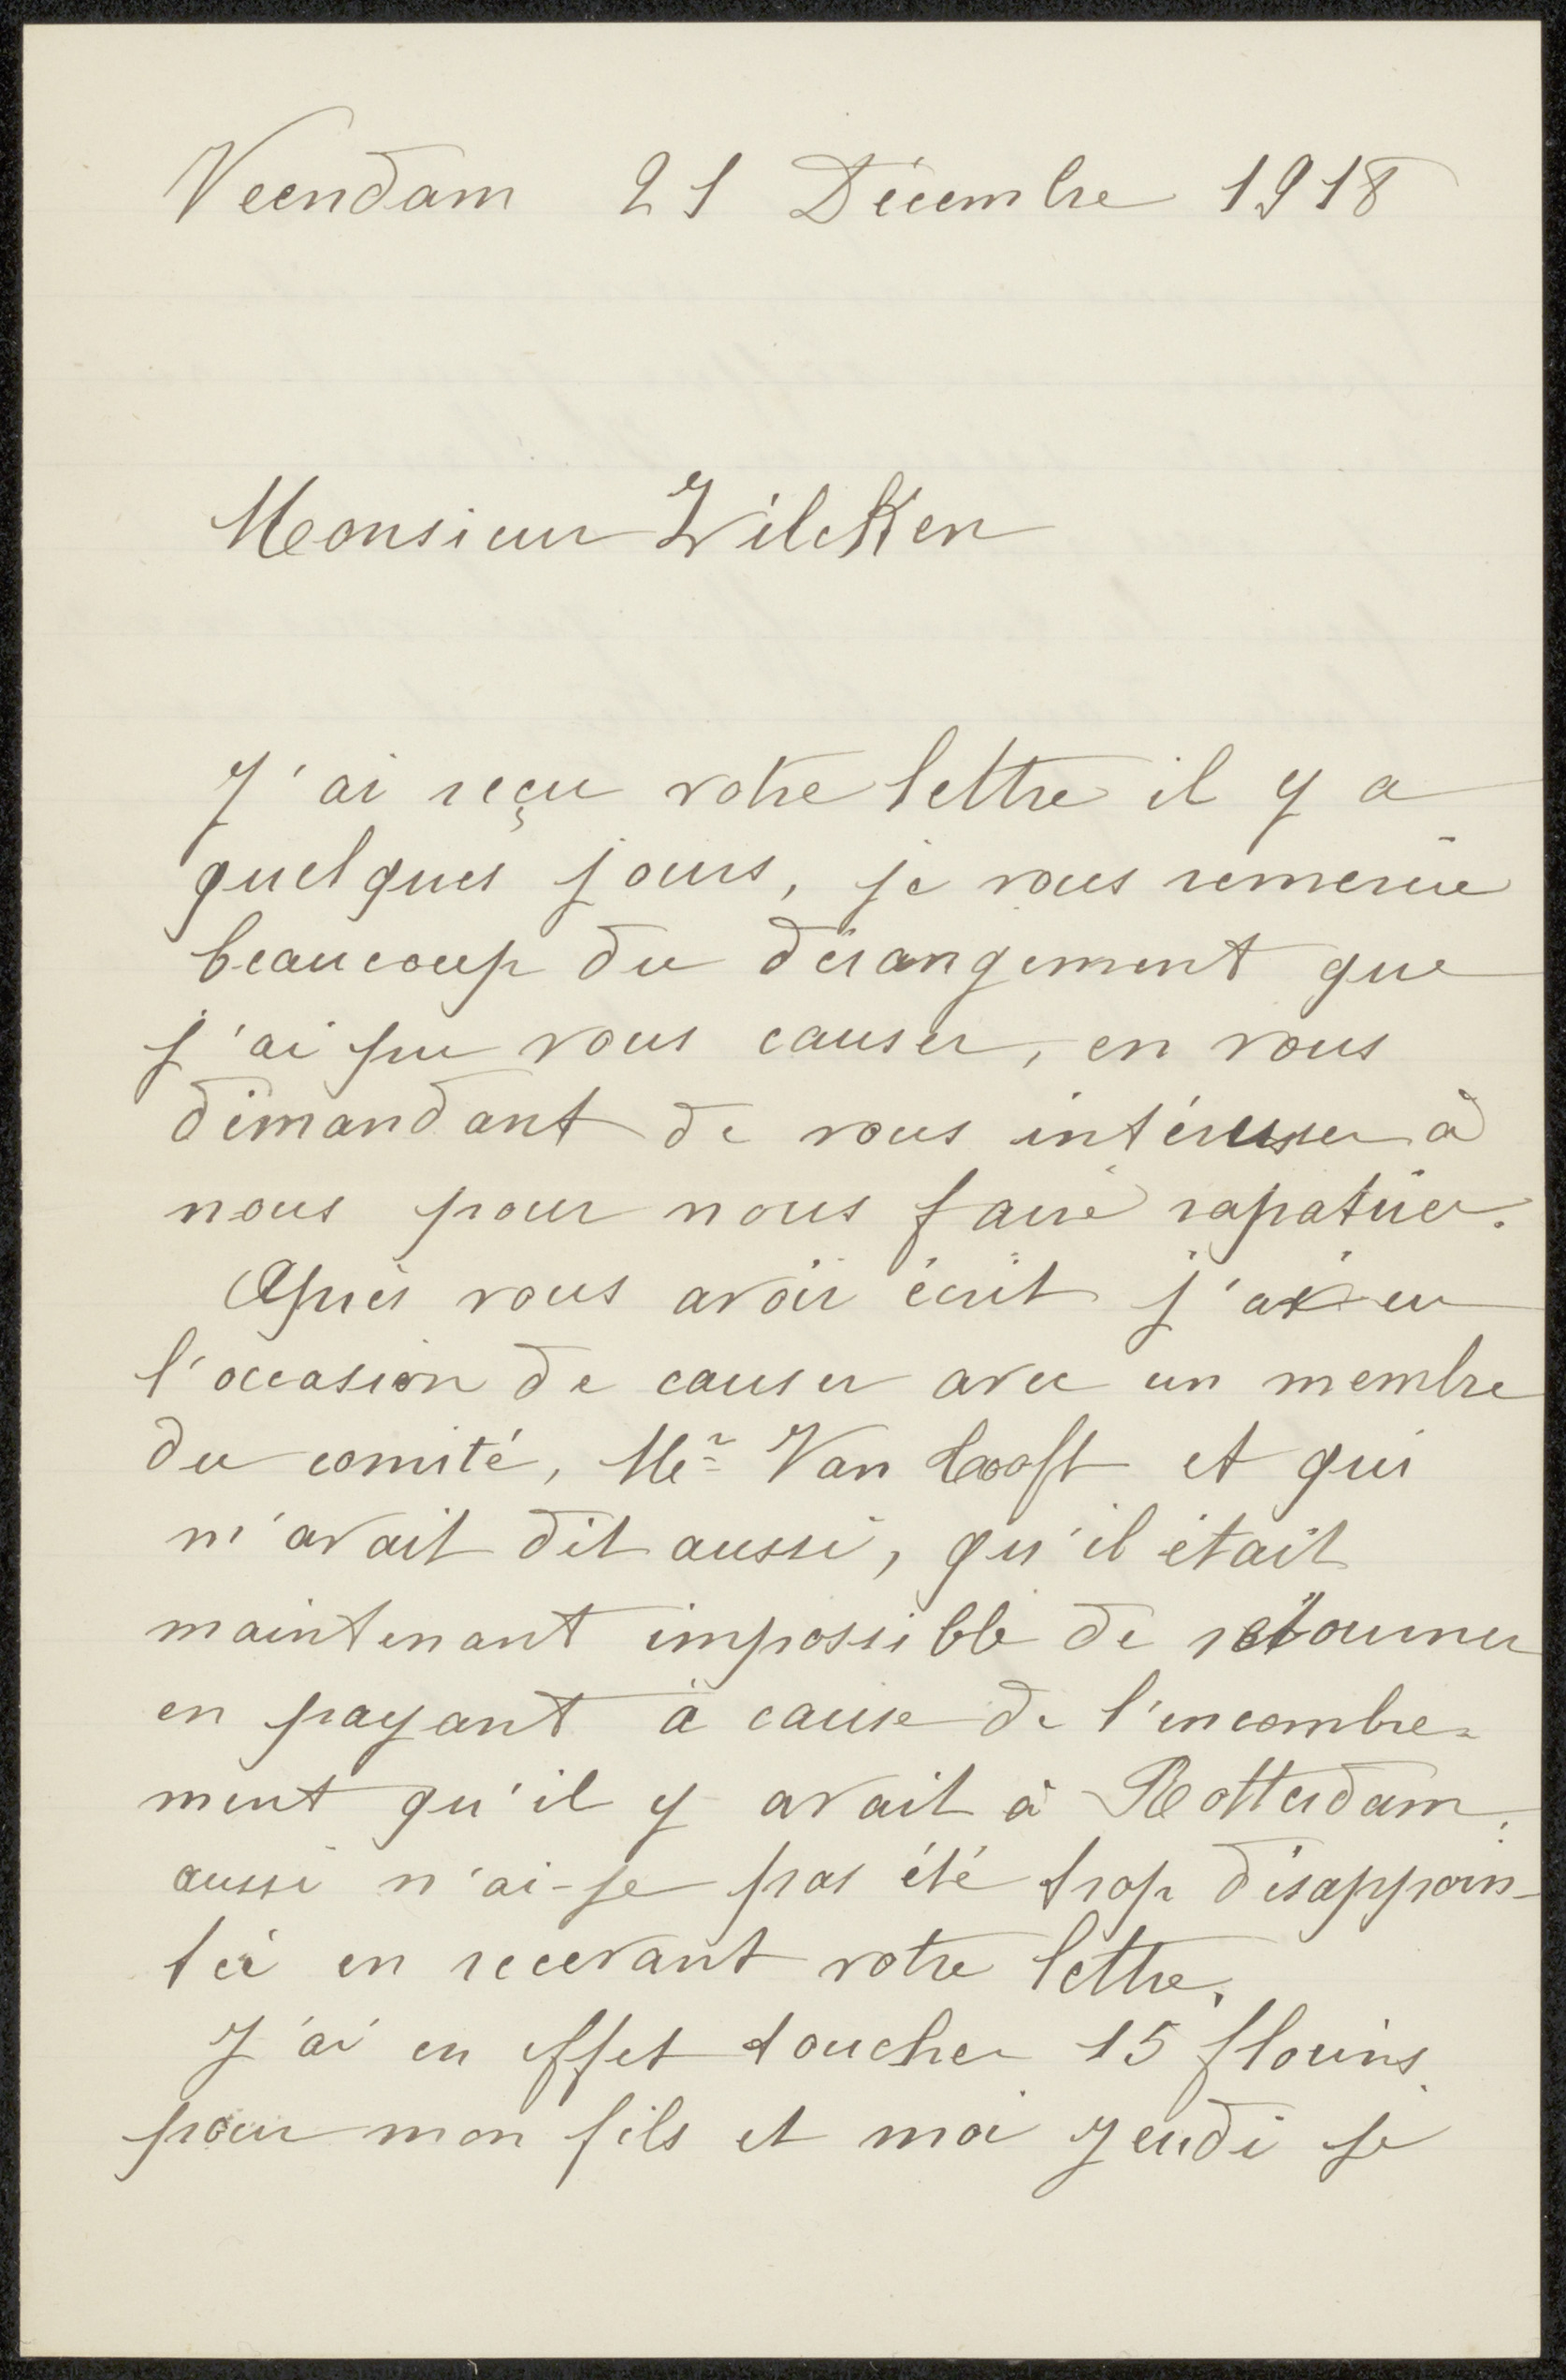 Veendam 21 Décembre 1918
Monsieur Zilcken
J'ai reçu votre lettre il y a
quelques jours, je vous remercie
beaucoup du dérangement que
j'ai pu vous causer, en vous
demandant de vous intéresser à
nous pour nous faire rapatrier.
Après vous avoir écrit j'ai eu
l'occasion de causer avec un membre
du comité, Mr Van Hooft et qui
m'avait dit aussi, qu'il était
maintenant impossible de retourner
en payant à cause de l'encombre=
ment qu'il y avait à Rotterdam;
aussi n'ai-je pas été trop désappoin-
tée en recevant votre lettre.
J'ai en effet toucher 15 florins
pour mon fils et moi Jeudi je